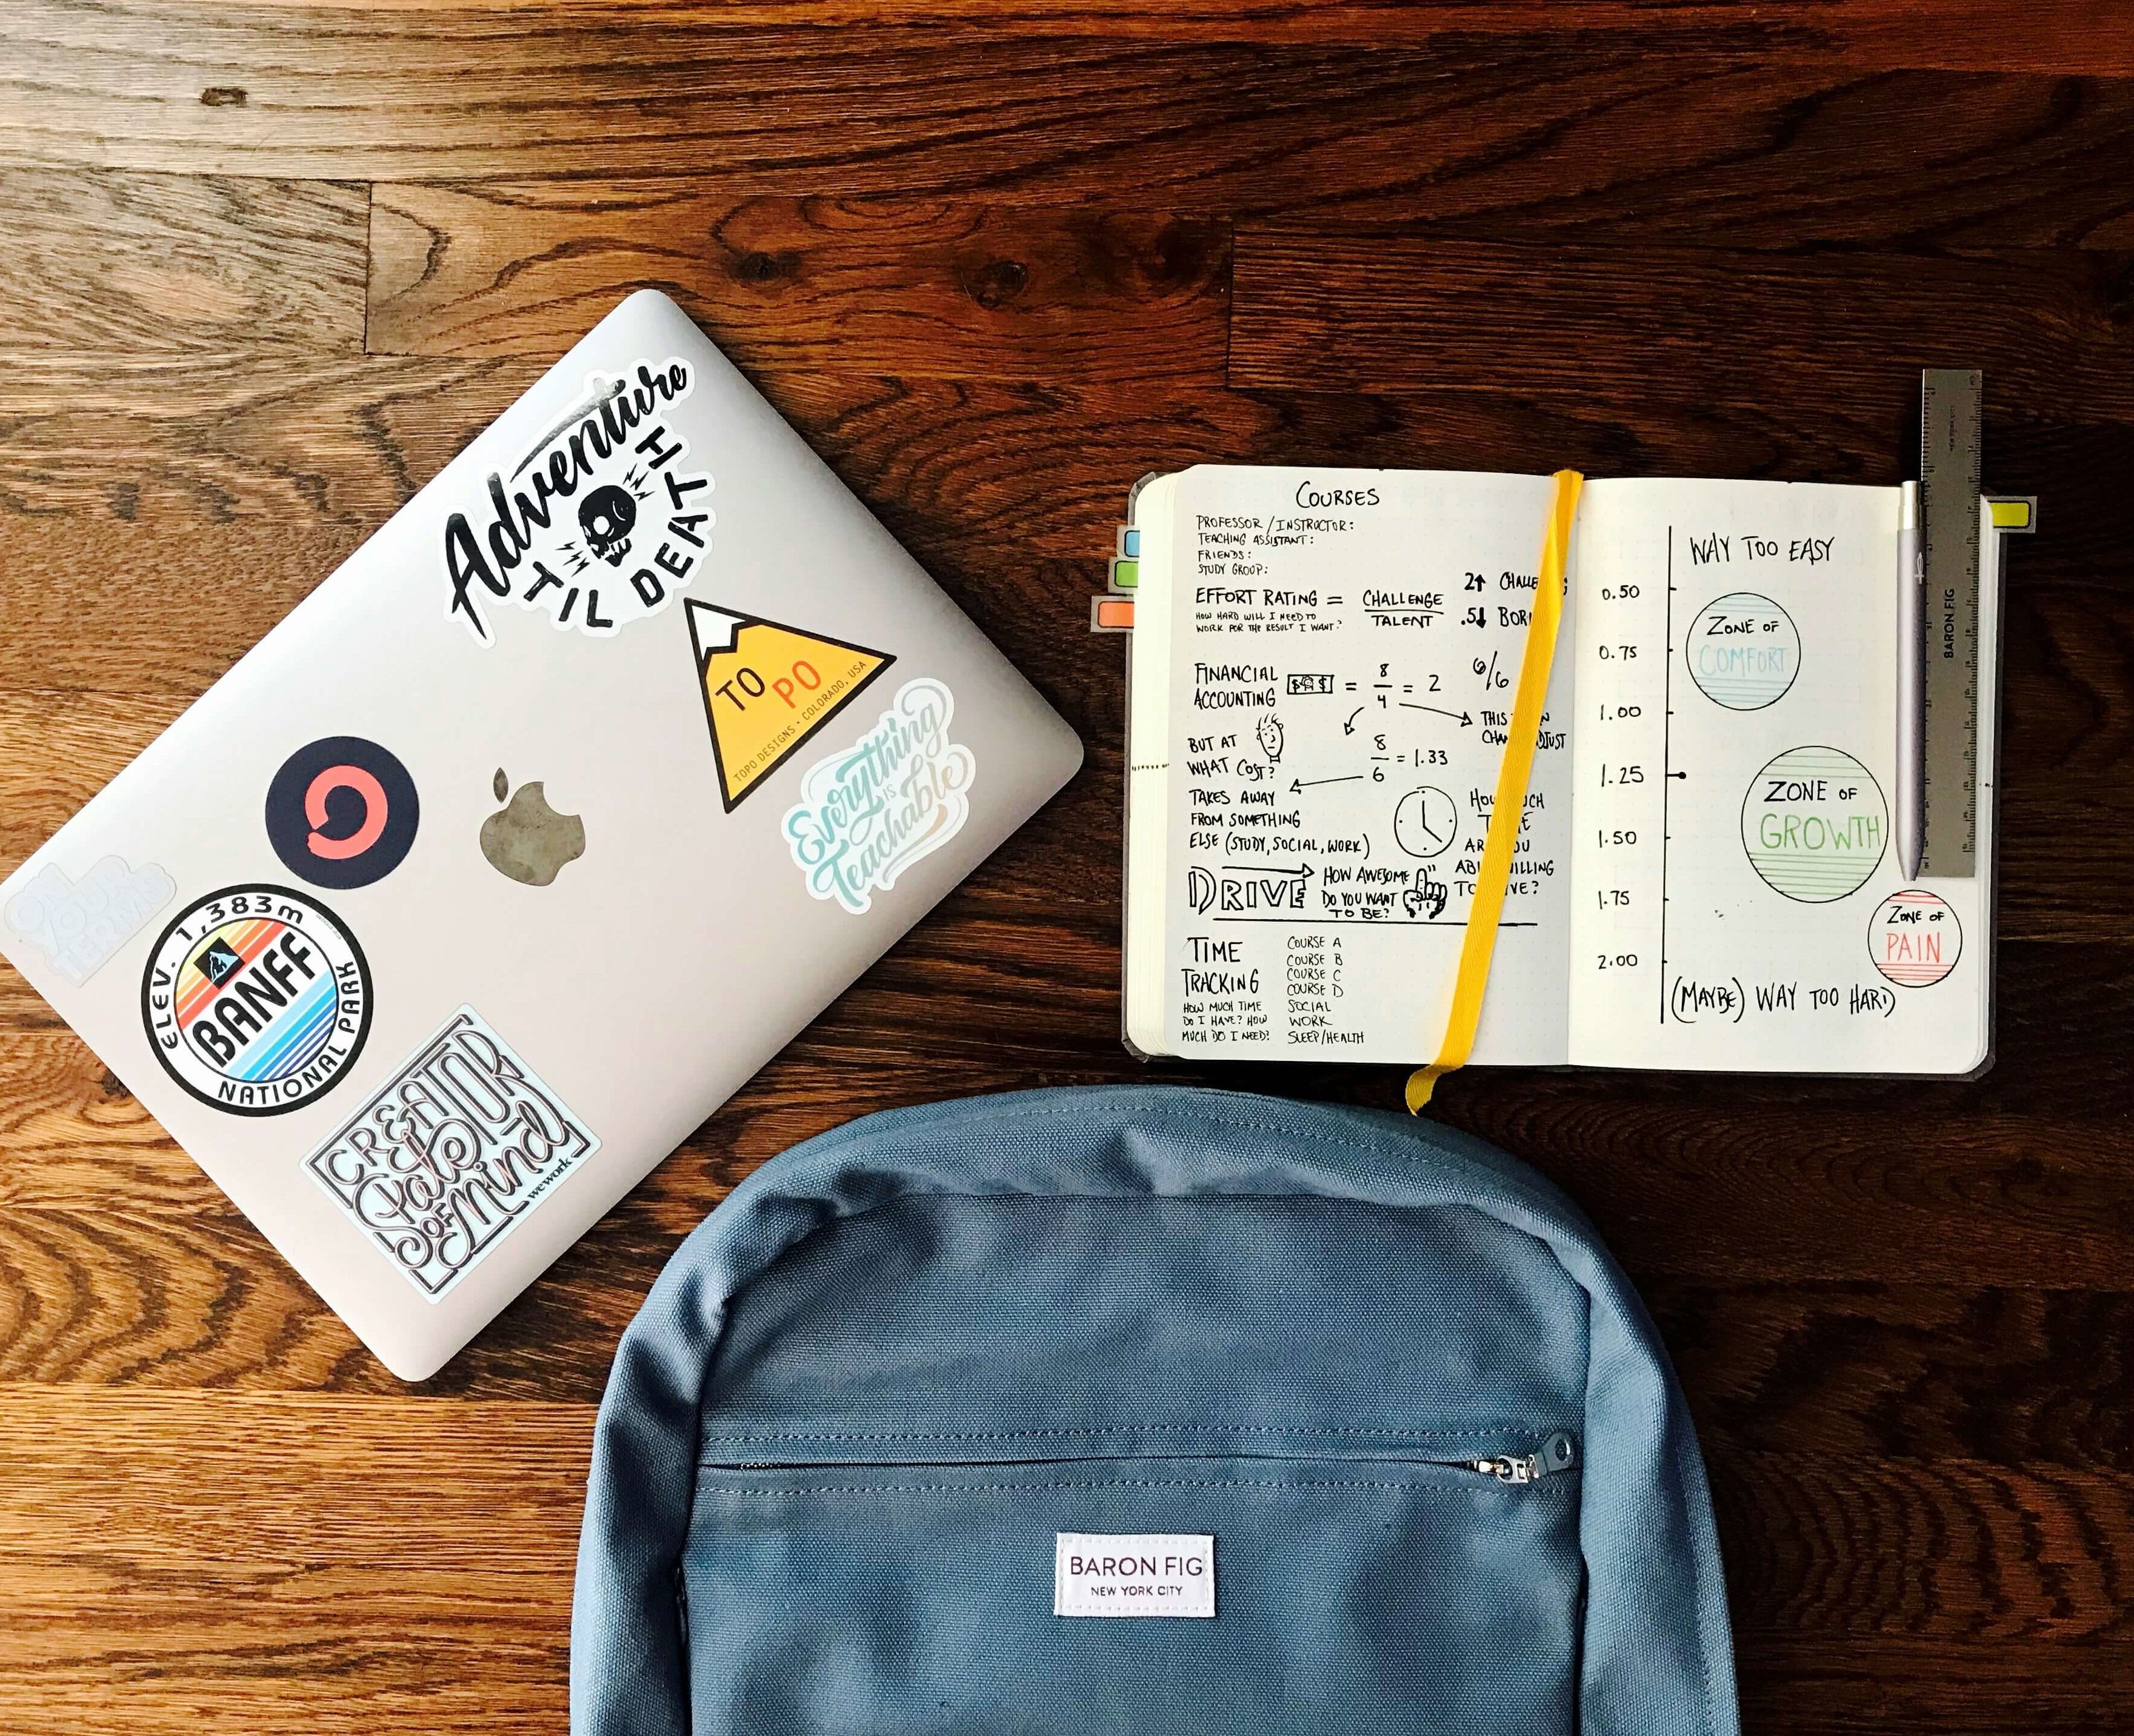 Adventure
TIL DEATH
TO PO
TOPO DESIGNS · COLORADO, USA
Everything
IS
Teachable
ON
YOUR
TERMS
ELEV. 1,383m
BANFF
NATIONAL PARK
CREATOR
State
OF Mind
wework
COURSES
PROFESSOR / INSTRUCTOR:
TEACHING ASSISTANT:
FRIENDS:
STUDY GROUP:
EFFORT RATING = CHALLENGE
TALENT
HOW HARD WILL I NEED TO
WORK FOR THE RESULT I WANT?
2↑
.5↓
FINANCIAL
ACCOUNTING
$ $ = 8
4
= 2
6/6
THIS
BUT AT
WHAT COST?
8
6
= 1.33
TAKES AWAY
FROM SOMETHING
ELSE (STUDY, SOCIAL, WORK)
DRIVE
HOW AWESOME
DO YOU WANT
TO BE?
TIME
TRACKING
HOW MUCH TIME
DO I HAVE? HOW
MUCH DO I NEED?
COURSE A
COURSE B
COURSE C
COURSE D
SOCIAL
WORK
SLEEP/HEALTH
WAY TOO EASY
0.50
ZONE OF
COMFORT
0.75
1.00
1.25
ZONE OF
GROWTH
1.50
1.75
ZONE OF
PAIN
2.00
(MAYBE) WAY TOO HARD
BARON FIG
BARON FIG
NEW YORK CITY